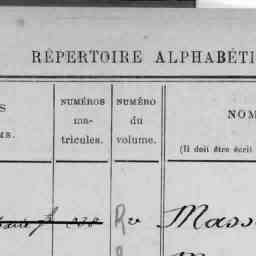 RÉPERTOIRE ALPHABÉTI
S
MS.
NUMÉROS
ma-
tricules.
NUMÉRO
du
volume.
NOM
(Il doit être écrit
Mass